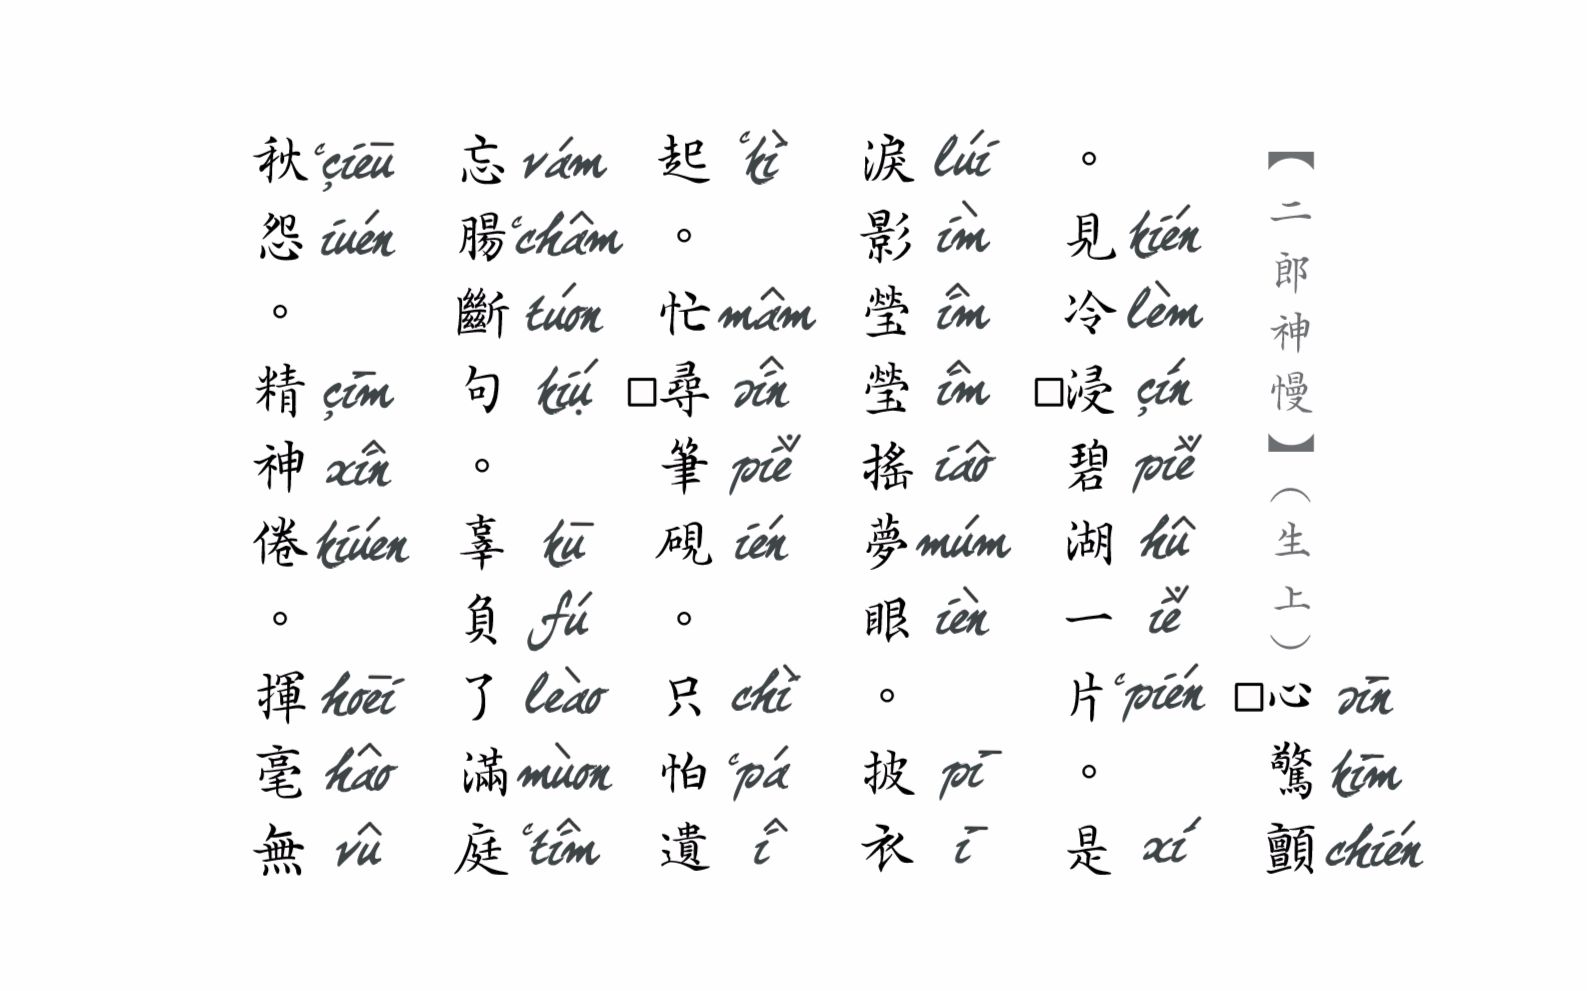 【二郎神慢】（生上）□心驚顫
sīn kīm chién
。見冷□浸碧湖一片。是
kién lèm çín piĕ̇ hû iĕ̇ ʻpién xí
淚影瑩瑩搖夢眼。披衣
lúi ìm îm îm iâo múm ièn pī ī
起。忙□尋筆硯。只怕遺
ʻkì mâm sîn piĕ̇ ién chì ʻpá î
忘腸斷句。辜負了滿庭
vám ʻchâm túon kiụ́ kū fú leào mùon ʻtîm
秋怨。精神倦。揮毫無
ʻçieū iuén çīm xîn kiúen hoēi hâo vû